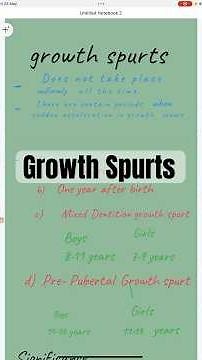 Untitled Notebook 2
growth spurts
- Does not take place
all the time.
- There are certain periods when
sudden acceleration in growth
Growth Spurts
b) One year after birth
c) Mixed Dentition growth spurt
Boys Girls
8-11 years 7-9 years
d) Pre-Pubertal Growth spurt
Boy Girls
years years